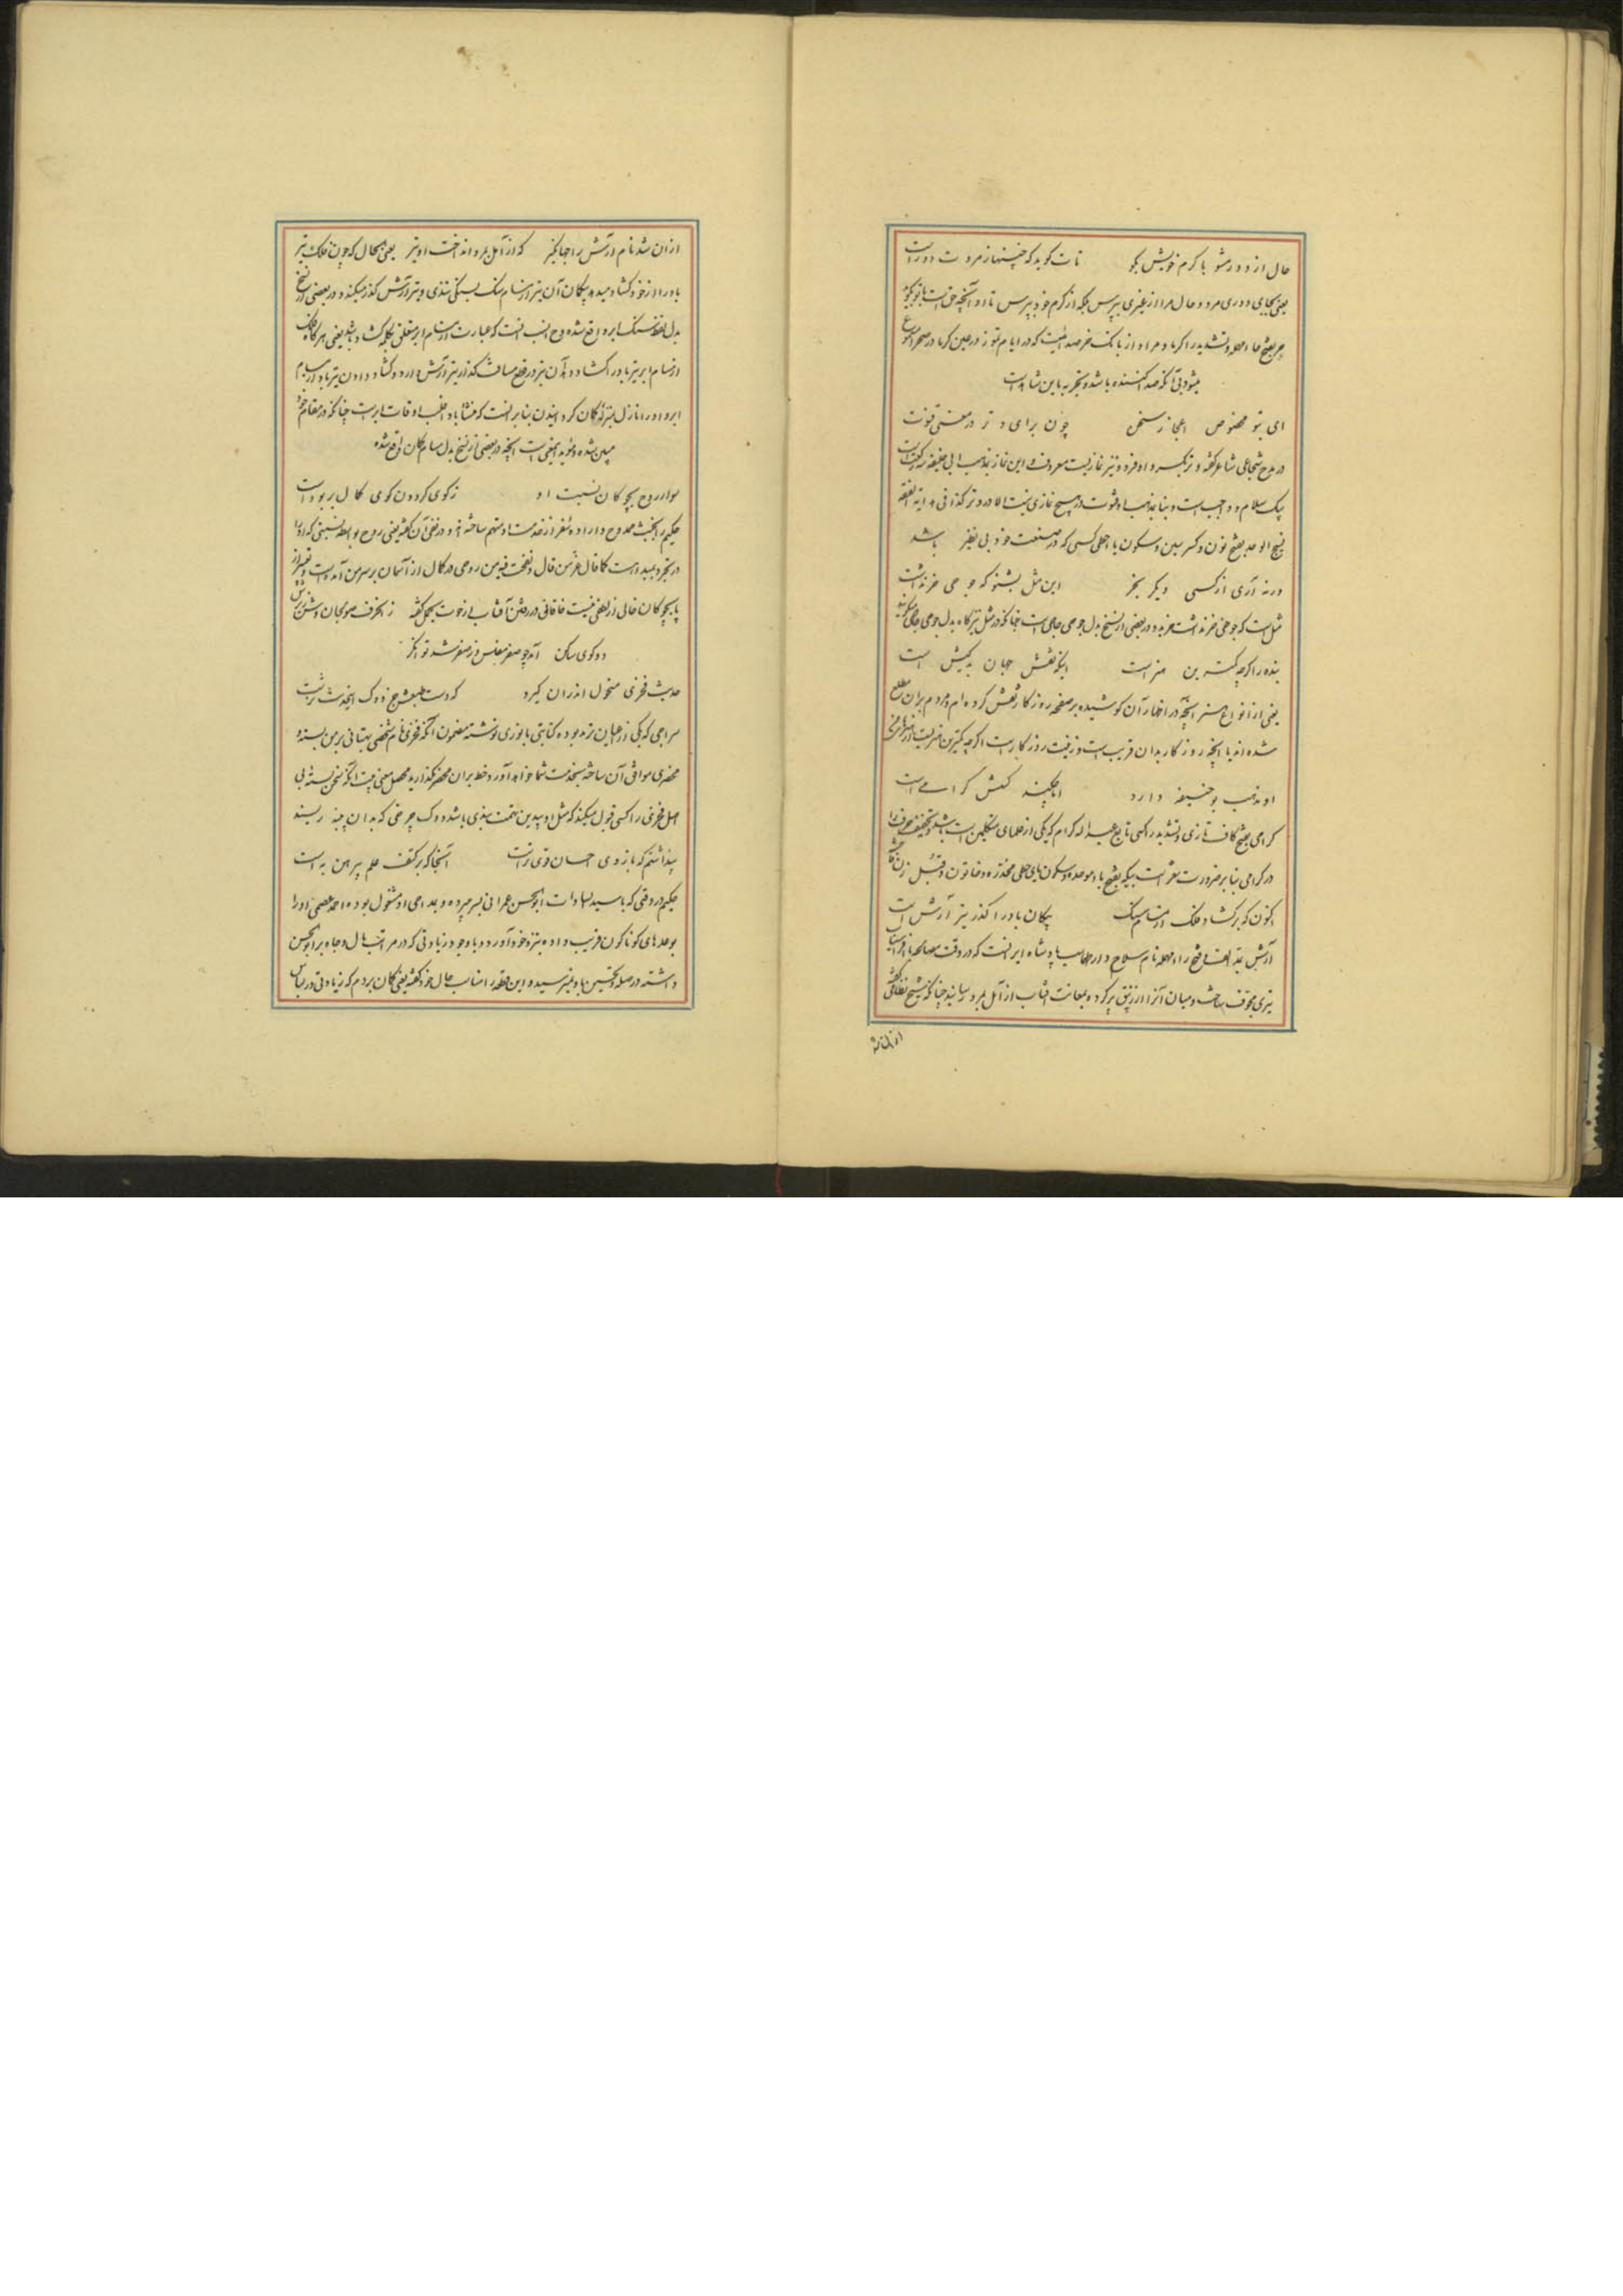 حال ازو دور مشو با کرم خویش بگو تات گوید که چنینها ز مروت دور است
یعنی بجای دوری مرو و حال مرا از غیری مپرس بلکه از کرم خود بپرس تا او آنچه حق است با تو بگوید
حر بفتح حاء مهمله و تشدید را گرما و مراد از بانگ خر صدائیست که در ایام تموز در عین گرما در صحرا مسموع
میشود بی آنکه صدا کننده باشد و تجربه باین شاهد است
ای بتو مخصوص اعجاز سخن چون برای وتر در معنی قنوت
در مدح شجاعی شاعر گفته وتر بکسر واو فرد و نیز نمازیست معروف و این نماز بمذهب ابی حنیفه سه رکعت است
بیک سلام و واجب است و بنا بمذهب او قنوت در هیچ نمازی نیست الا در وتر کذا فی هدایة الفقه
نسیج الوحد بفتح نون و کسر سین و سکون یا حطی کسی که در صنعت خود بی نظیر باشد
ورنه آری از کسی دیگر بخر این مثل بشنو که جوحی خر نداشت
مثل است که جوحی خر نداشت خر خرید و در بعضی از نسخ بدل جوحی حاجی است چنانکه در مثل نیز گاه بدل جوحی حاجی میگویند
بنده را گرچه کمترین هنر است اینکه نقش جهان بدکیش است
یعنی از انواع هنر آنچه در اظهار آن کوشیده بر صفحه روزگار نقش کرده ام و مردم بران مطلع
شده اند یا آنچه روزگار بدان فریب است و زینت روزگار است اگرچه کمترین هنریست از هنرهای من
او مذهب بوحنیفه دارد اما چکند کنش کرامی است
کرامی بفتح کاف تازی و تشدید را کسی تابع عبدالله کرام که یکی از علمای متکلمین است باشد و تخفیف حرف را
در کرامی بنا بر ضرورت شعر است بیکه بفتح باء موحده و سکون یای حطی مخدره و خاتون و قیل زن
اکنون که برگشاد فلک از مسام سنگ پیکان باد را گذر تیر آرش است
آرش بمد الف و فتح راء مهمله نام سلاح دار طهماسب پادشاه ایرانست که در وقت مصالحه با افراسیاب
تیری مجوف ساخت و میان آنرا از زیبق پر کرده بمعاونت آفتاب از آمل بمرو رسانید چنانکه شیخ نظامی گفته
از ان شد
از ان شد نام آرش را جهانگیر که از آمل بمرو انداخت او تیر یعنی الحال که چون فلک تیر
باد را از خود گشاد میدهد پیکان آن تیر از مسام سنگ بسبکی و تندی و تیر آرش گذر میکند و در بعضی از نسخ
بدل لفظ سنگ ابر واقع شده و ح انسب انست که عبارت از مسام ابر متعلق بکلمه گشاد باشد یعنی هرگاه فلک
از مسام ابر تیر باد را گشاد دهد آن تیر در قطع مسافت گذر تیر آرش دارد و گشاد دادن تیر باد از مسام
ابر و او را نازل منزله کمان گردانیدن بنا بر انست که منشا باد اغلب اوقات ابرست چنانکه در مقام خود
مبین شده و مؤید اینمعنی است آنچه در بعضی از نسخ بدل مسام کمان واقع شده
سوار روح بچوکان نسبت او ز گوی گردون گوی کمال بربوده است
حکیم را بخبث ممدوح دارا و متنفر از خدمت او متهم ساخته اند و در نفی آن گفته یعنی روح بواسطه نسبتی که او را
در تجرد بمبدا هست کما قال عز من قال و نفخت فیه من روحی در کمال از آسمان بر سر من آمده است و تعبیر از
پا بچوکان خالی از لطفی نیست خاقانی در رفتن آفتاب از حوت بحمل گفته زآنطرف صولجان
دو گوی ساکن آمد چو صفر مفلس وز صفر شد توانگر
حدیث فخری منحول اندران گیرد که دست طبعش جز دوک اینحدیث نرشت
سراجی که یکی از اهالی ترمذ بوده کتابتی بانوری نوشته مضمون آنکه فخری نام شخصی بهتانی بر من بسته و
محضری موافق آن ساخته بخدمت شما خواهد آورد خط بران محضر نگذارید محصل معنی بیت آنکه سخن بسته بی
اصل فخری را کسی قبول میکند که مثل او بیدین تهمت پذیر باشد و دوک چرخی که بدان پنبه ریسند
پنداشتم که بازوی احسان قوی تر است آنجا که بر کتف علم پیرهن به است
حکیم در وقتی که با سید سادات ابوالحسن عمرانی بسر میبرده و بمداحی او مشغول بوده احمد عصمی او را
بوعدهای گوناگون فریب داده بنزد خود آورد و باوجود زیادتی که در مراتب مال و جاه بر ابوالحسن
داشته در صله و تحسین با و نمیرسیده و این قطعه را مناسب حال خود گفته یعنی گمان بردم که زیادتی در لباس